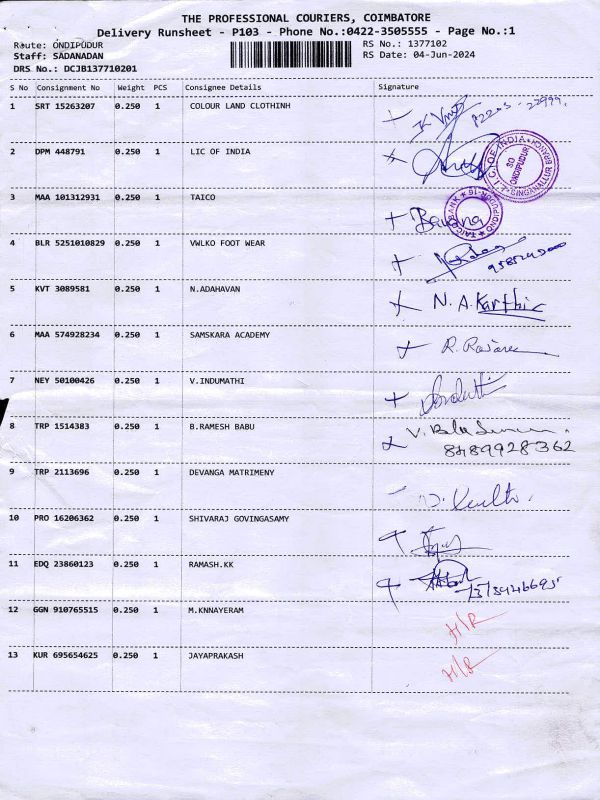 THE PROFESSIONAL COURIERS, COIMBATORE
Delivery Runsheet - P103 - Phone No.:0422-3505555 - Page No.:1
Route: ONDIPUDUR RS No.: 1377102
Staff: SADANADAN RS Date: 04-Jun-2024
DRS No.: DCJB137710201
S No Consignment No Weight PCS Consignee Details Signature
1 SRT 15263207 0.250 1 COLOUR LAND CLOTHINH
2 DPM 448791 0.250 1 LIC OF INDIA
L.I.C. OF INDIA SO ONDIPUDUR SINGANALLUR BRANCH
3 MAA 101312931 0.250 1 TAICO Bavana
TAICO BANK ONDIPUDUR-16
4 BLR 5251010829 0.250 1 VWLKO FOOT WEAR
5 KVT 3089581 0.250 1 N.ADAHAVAN N.A.Karthic
6 MAA 574928234 0.250 1 SAMSKARA ACADEMY R.
7 NEY 50100426 0.250 1 V.INDUMATHI
8 TRP 1514383 0.250 1 B.RAMESH BABU V.
8489928362
9 TRP 2113696 0.250 1 DEVANGA MATRIMENY
10 PRO 16206362 0.250 1 SHIVARAJ GOVINGASAMY
11 EDQ 23860123 0.250 1 RAMASH.KK
12 GGN 910765515 0.250 1 M.KNNAYERAM H/R
13 KUR 695654625 0.250 1 JAYAPRAKASH H/R